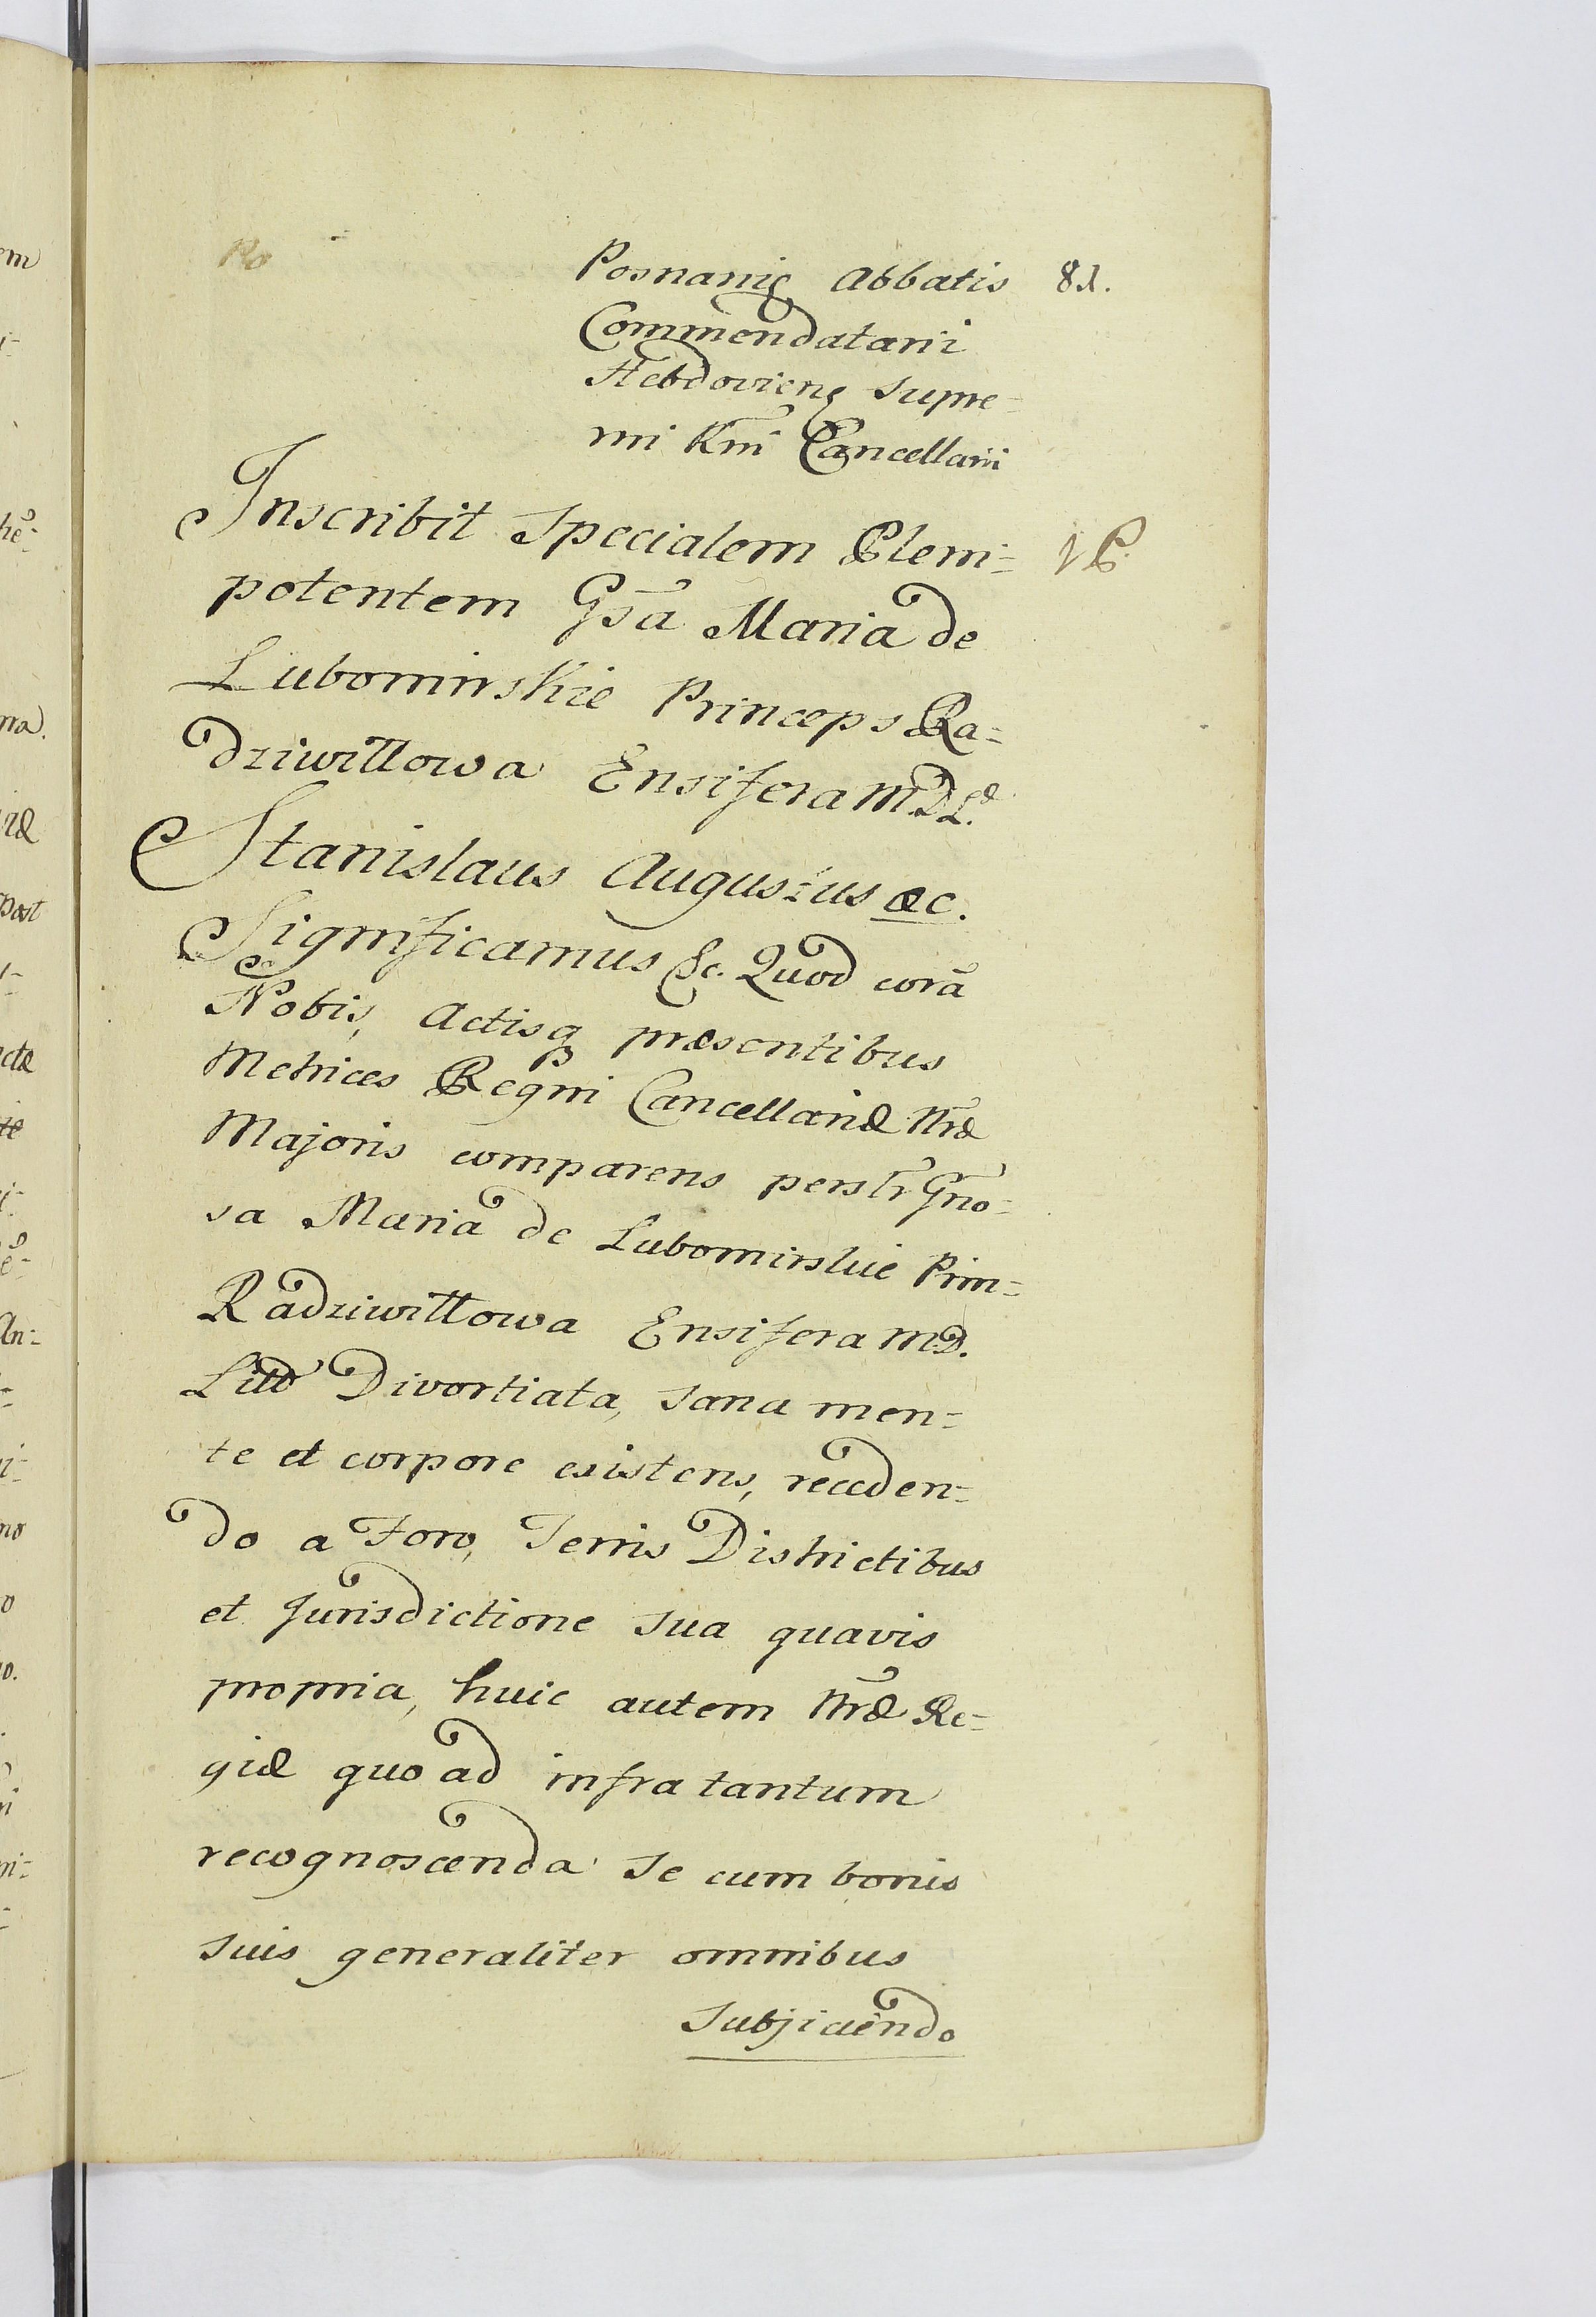 Posnanię Abbatis 81.
Commendatarii
Hebdovienę Supre-
mi Rni Cancellarii
Inscribit Specialem Pleni=
potentem Gsã Maria de
Lubomirskie Princeps Ra=
dziwiłłowa Ensifera M.D.L.
Stanislaus Augustus &c.
Significamus &c. Quod corã
Nobis, Actisq præsentibus
Metrices Regni Cancellariæ Nræ
Majoris comparens persltr Gno=
sa Maria de Lubomirskie Prin=
Radziwiłłowa Ensifera M.D.
Litt Divortiata, sana men=
te et corpore existens, receden=
do a Foro, Terris Districtibus
et Jurisdictione sua quavis
propria, huic autem Nræ Re=
giæ quo ad infra tantum
recognoscenda se cum bonis
suis generaliter omnibus
Subjiciendo